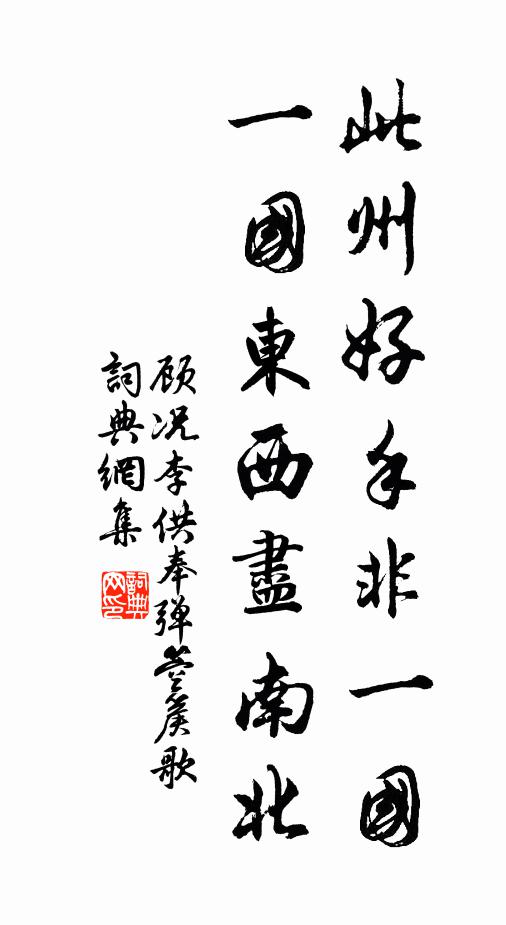 此州好手非一國
一國東西盡南北
顾况李供奉弹箜篌歌
詞典網集
詞典
网印